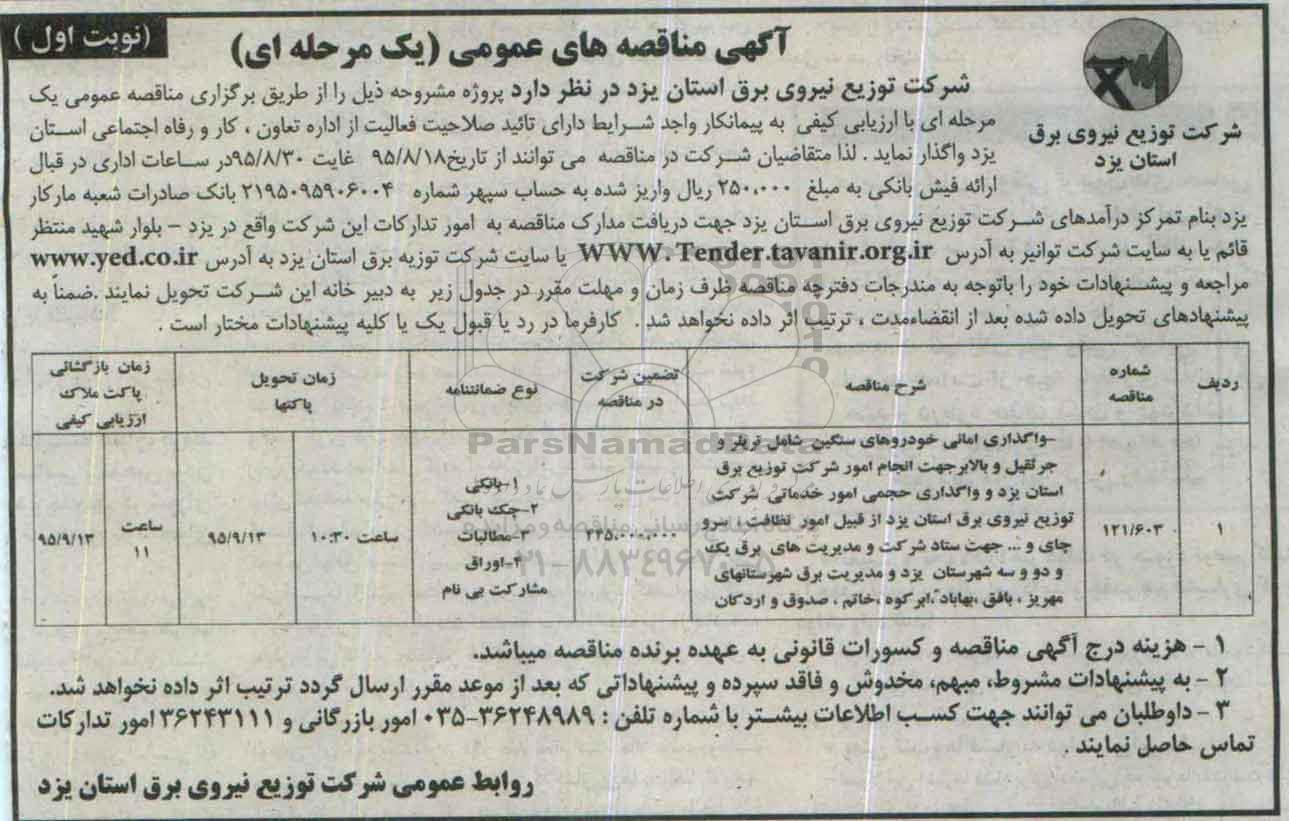 (نوبت اول)
آگهی مناقصه های عمومی (یک مرحله ای)
شرکت توزیع نیروی برق
استان یزد
شرکت توزیع نیروی برق استان یزد در نظر دارد پروژه مشروحه ذیل را از طریق برگزاری مناقصه عمومی یک
مرحله ای با ارزیابی کیفی به پیمانکار واجد شرایط دارای تائید صلاحیت فعالیت از اداره تعاون ، کار و رفاه اجتماعی استان
یزد واگذار نماید . لذا متقاضیان شرکت در مناقصه می توانند از تاریخ۹۵/۸/۱۸ غایت ۹۵/۸/۳۰در ساعات اداری در قبال
ارائه فیش بانکی به مبلغ ۲۵۰,۰۰۰ ریال واریز شده به حساب سپهر شماره ۲۱۹۵۰۹۵۹۰۶۰۰۴ بانک صادرات شعبه مارکار
یزد بنام تمرکز درآمدهای شرکت توزیع نیروی برق استان یزد جهت دریافت مدارک مناقصه به امور تدارکات این شرکت واقع در یزد – بلوار شهید منتظر
قائم یا به سایت شرکت توانیر به آدرس WWW. Tender.tavanir.org.ir یا سایت شرکت توزیه برق استان یزد به آدرس www.yed.co.ir
مراجعه و پیشنهادات خود را باتوجه به مندرجات دفترچه مناقصه ظرف زمان و مهلت مقرر در جدول زیر به دبیر خانه این شرکت تحویل نمایند .ضمناً به
پیشنهادهای تحویل داده شده بعد از انقضاءمدت ، ترتیب اثر داده نخواهد شد . کارفرما در رد یا قبول یک یا کلیه پیشنهادات مختار است .
ردیف
شماره
مناقصه
شرح مناقصه
تضمین شرکت
در مناقصه
نوع ضمانتنامه
زمان تحویل
پاکتها
زمان بازگشائی
پاکت ملاک
ارزیابی کیفی
۱
۱۲۱/۶۰۳
-واگذاری امانی خودروهای سنگین شامل تریلر و
جرثقیل و بالابرجهت انجام امور شرکت توزیع برق
استان یزد و واگذاری حجمی امور خدماتی شرکت
توزیع نیروی برق استان یزد از قبیل امور نظافت ، سرو
چای و ... جهت ستاد شرکت و مدیریت های برق یک
و دو و سه شهرستان یزد و مدیریت برق شهرستانهای
مهریز ، بافق ،بهاباد ،ابرکوه ،خاتم ، صدوق و اردکان
۲۴۵,۰۰۰,۰۰۰
۱-بانکی
۲-چک بانکی
۳-مطالبات
۴-اوراق
مشارکت بی نام
ساعت ۱۰:۳۰
۹۵/۹/۱۳
ساعت
۱۱
۹۵/۹/۱۳
ParsNamadData
۰۲۱-۸۸۳۴۹۶۷۰
۱ - هزینه درج آگهی مناقصه و کسورات قانونی به عهده برنده مناقصه میباشد.
۲ - به پیشنهادات مشروط، مبهم، مخدوش و فاقد سپرده و پیشنهاداتی که بعد از موعد مقرر ارسال گردد ترتیب اثر داده نخواهد شد.
۳ - داوطلبان می توانند جهت کسب اطلاعات بیشتر با شماره تلفن : ۳۶۲۴۸۹۸۹-۰۳۵ امور بازرگانی و ۳۶۲۴۳۱۱۱ امور تدارکات
تماس حاصل نمایند .
روابط عمومی شرکت توزیع نیروی برق استان یزد